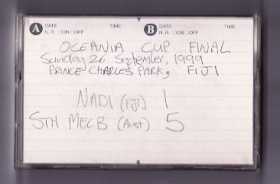 A DATE TIME B DATE TIME
N.R. □ON □OFF N.R. □ON □OFF
OCEANIA CUP FINAL
Sunday 26 September, 1999
PRINCE CHARLES PARK, FIJI
NADI (FIJI) 1
STH MELB (Aust) 5